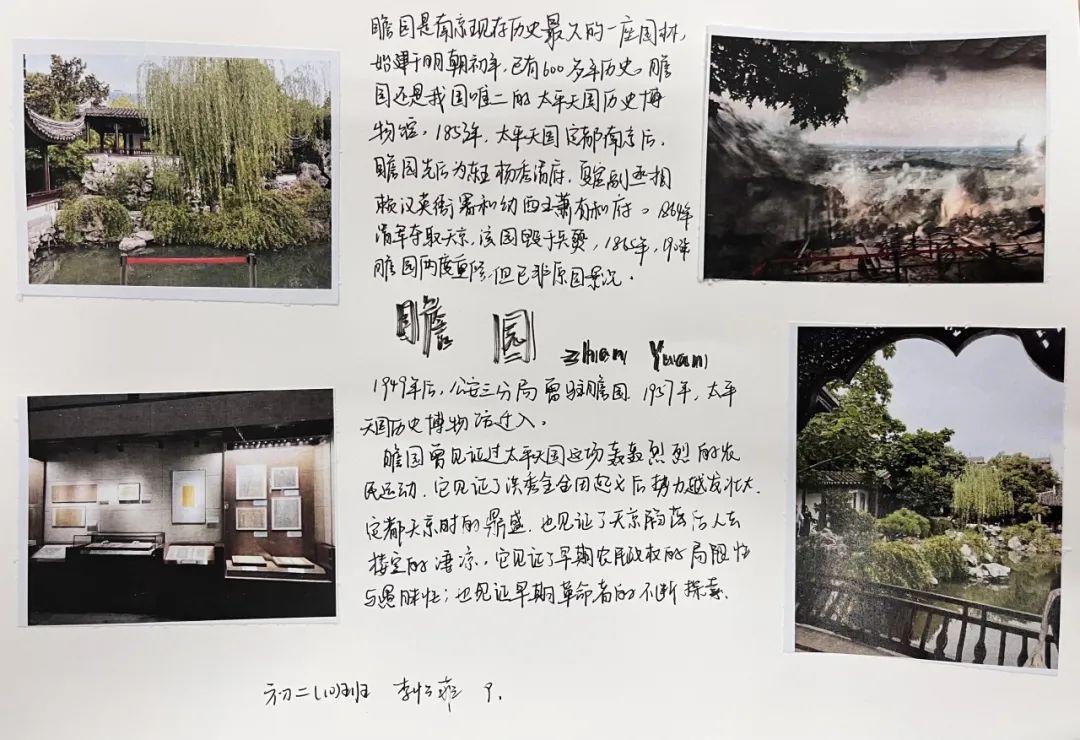 瞻园是南京现存历史最久的一座园林,
始建于明朝初年,已有600多年历史。瞻
园还是我国唯二的太平天国历史博
物馆,1853年,太平天国定都南京后,
瞻园先后为东王杨秀清府,夏官副丞相
赖汉英衙署和幼西王萧有和府。1864年
清军夺取天京,该园毁于兵燹,1865年,1903年
瞻园两度重修,但已非原园景况。
瞻 园 Zhan Yuan
1949年后,公安三分局曾驻瞻园.1957年,太平
天国历史博物馆迁入。
瞻园曾见证过太平天国这场轰轰烈烈的农
民运动.它见证了洪秀全金田起义后势力越发壮大.
定都天京时的鼎盛.也见证了天京陷落后人去
楼空的凄凉,它见证了早期农民政权的局限性
与愚昧性;也见证早期革命者的不断探索.
初二(10)班 李 菲 9.